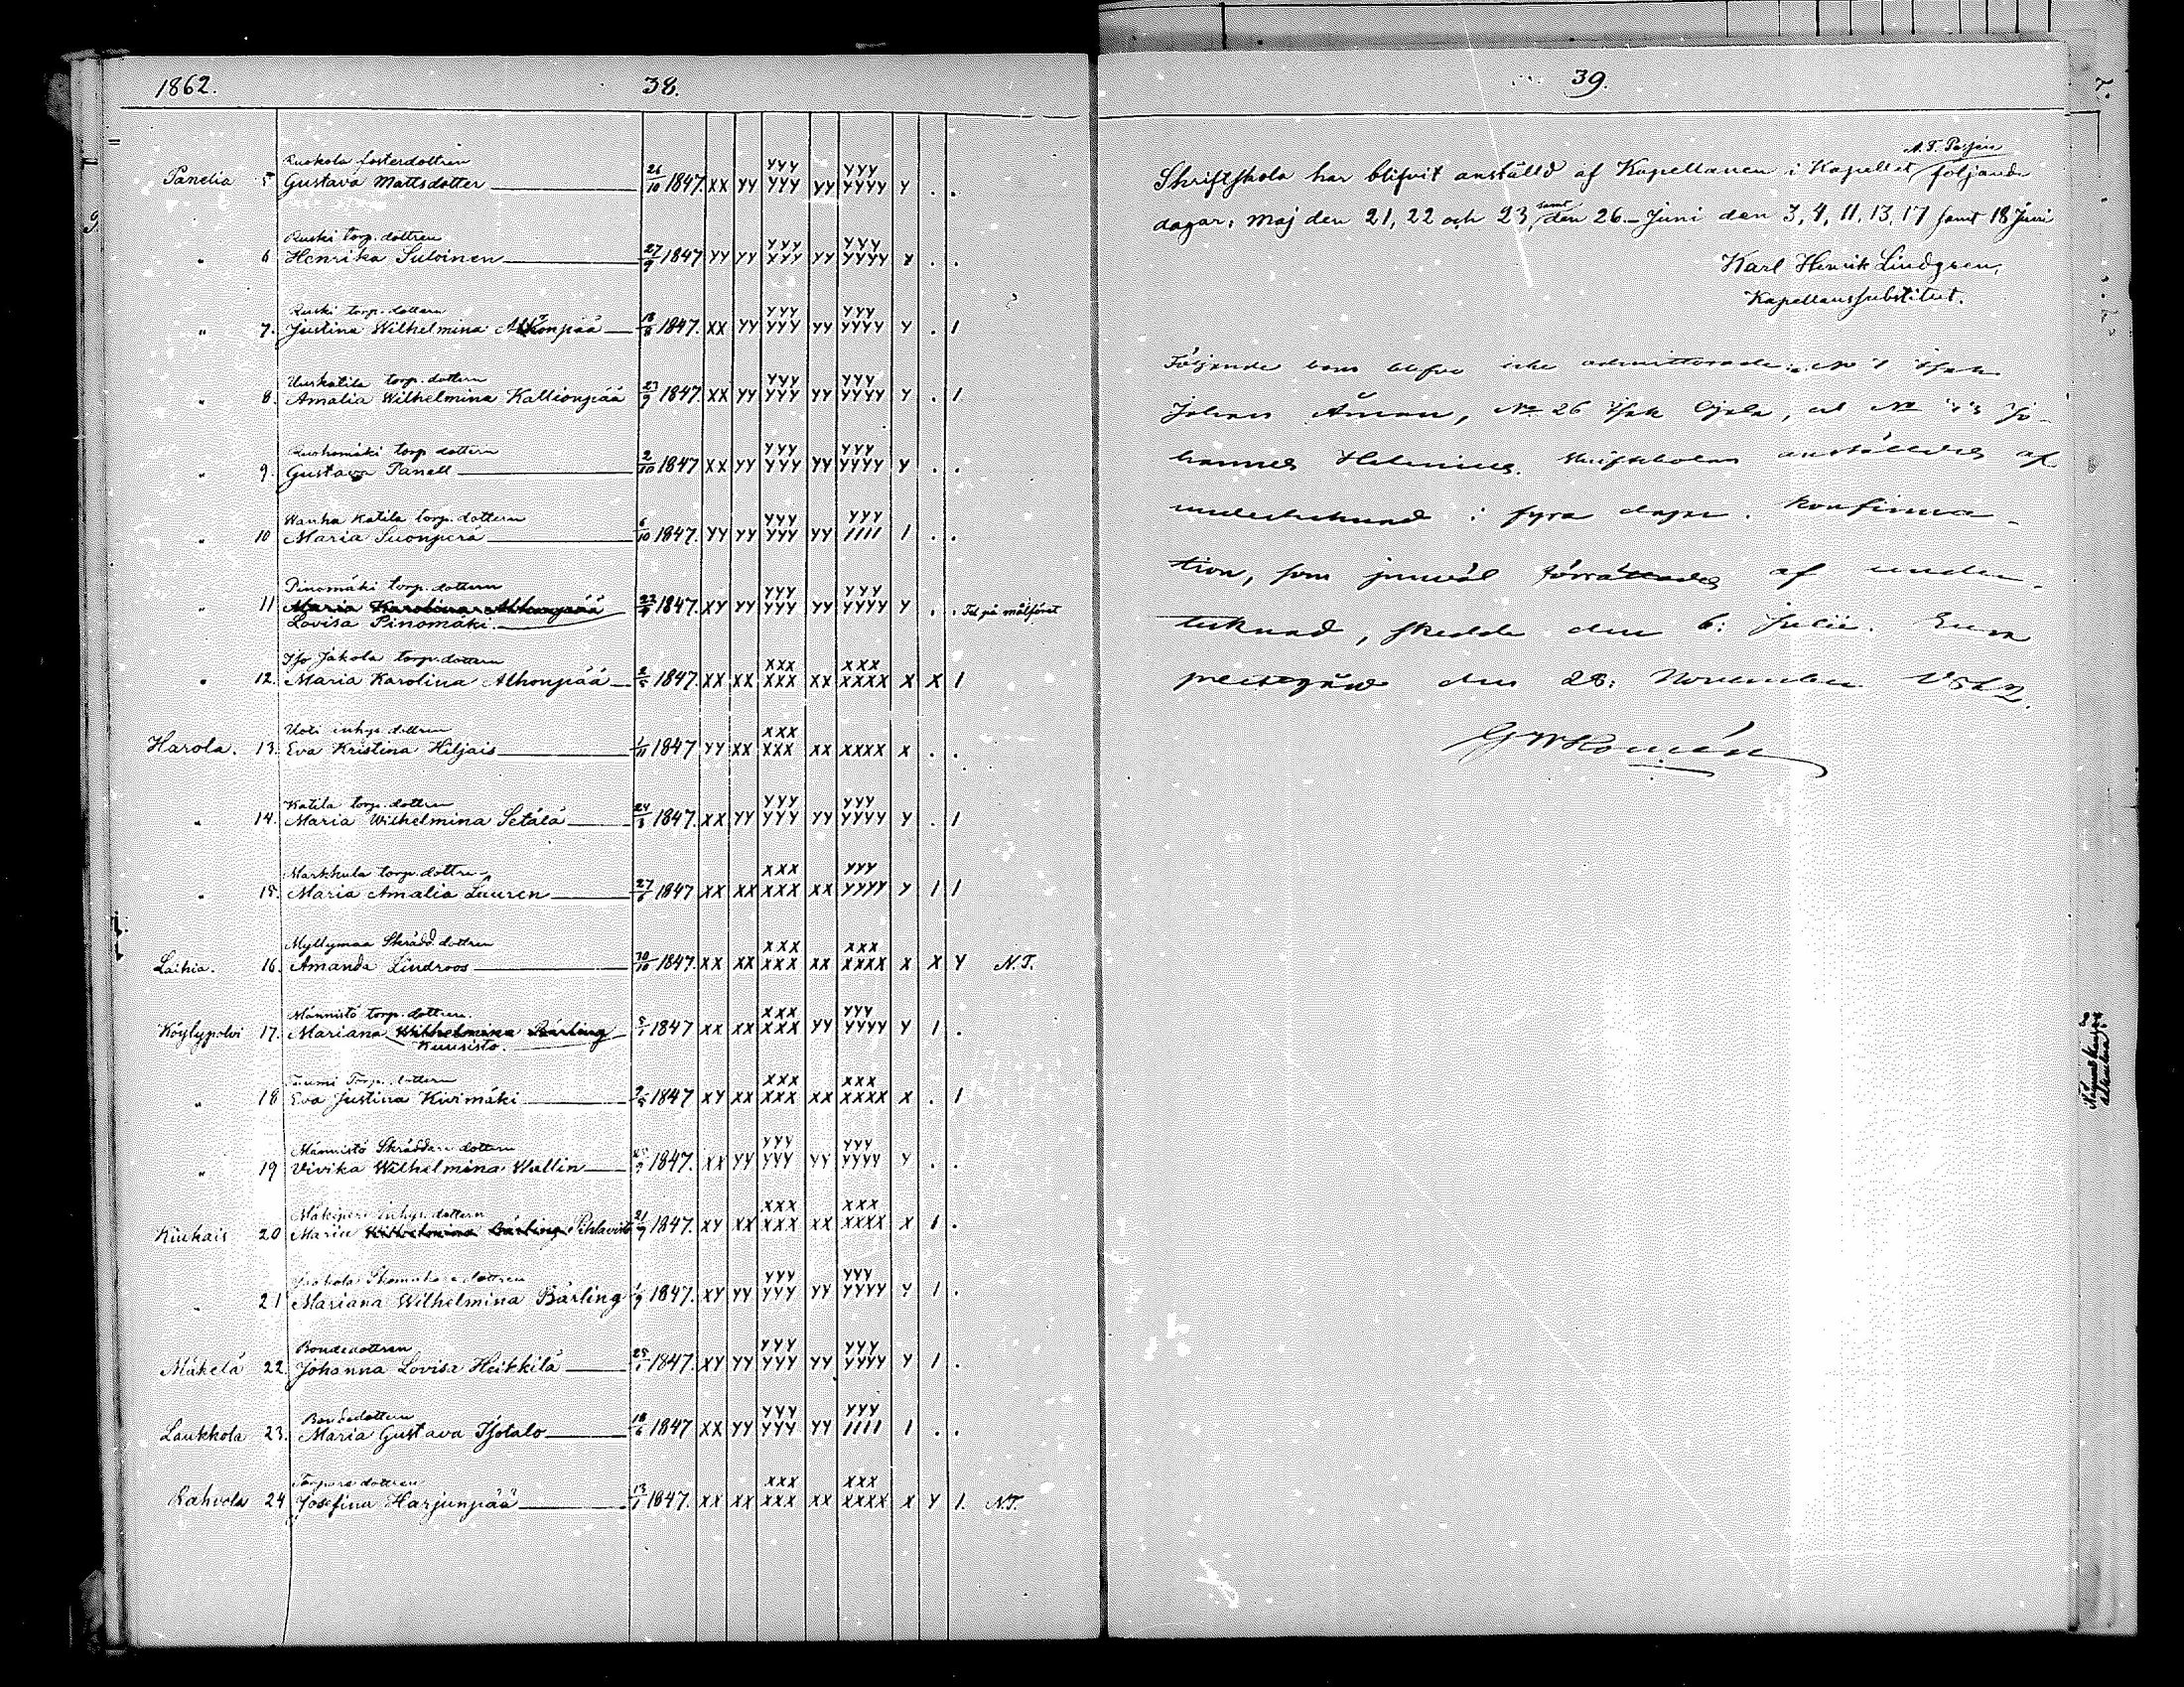 1862. 38.
Ruokola fosterdottren
Panelia 5 Gustava Mattsdotter 26/10 1847. XX YY YYY YYY YY YYY YYYY Y . .
Ruski torp. dottren
" 6 Henrika Suloinen 27/9 1847 YY YY YYY YYY YY YYY YYYY Y . .
Ruski torp. dottern
" 7. Justina Wilhelmina Alhonpää 1847. XX YY YYY YYY YY YYY YYYY Y . 1
torp. dottern
" 8. Amalia Wilhelmina Kallionpää 23/9 1847. XX YY YYY YYY YY YYY YYYY Y . 1
torp dottern
" 9. Gustava Panell 2/10 1847 XX YY YYY YYY YY YYY YYYY Y . .
Wanha Katila torp. dottern
" 10 Maria Suonperä 6/10 1847. YY YY YYY YYY YY YYY 1111 1 . .
Pinomäki torp. dottern
" 11 Maria Karolina Alhonpää 22/9 1847. XY YY YYY YYY YY YYY YYYY Y . . Fel på målföret
Lovisa Pinomäki.
Iso Jakola torp. dottern
" 12. Maria Karolina Alhonpää 1847. XX XX XXX XXX XX XXX XXXX X X 1
Uoti inhys dottren
Harola. 13. Eva Kristina Hiljais 1847 YY XX XXX XXX XX XXXX X . .
Katila torp. dottren
" 14. Maria Wilhelmina Setälä 24/8 1847. XX YY YYY YYY YY YYY YYYY Y . 1
Markkula torp. dottren
" 15. Maria Amalia Luuren 27/6 1847 XX XX XXX XXX XX YYY YYYY Y 1 1
Myllymaa Skrädd. dottren
Laihia. 16. Amanda Lindroos 1847. XX XX XXX XXX XX XXX XXXX X X Y N.T.
Männistö torp. dottren.
Köylypolvi 17. Mariana Wilhelmina Bärling 1847 XX XX XXX XXX YY YYY YYYY Y 1 .
Kuusisto.
Torp. dottern
" 18 Eva Justina Kivimäki 1847 XY XX XXX XXX XX XXX XXXX X . 1
Männistö Skräddare dottern
" 19 Vivika Wilhelmina Wallin 1847. XX YY YYY YYY YY YYY YYYY Y . .
inhys. dottern
Kiukais 20 Maria Wilhelmina Bärling Pihlavisto 21/9 1847. XY XX XXX XXX XX XXX XXXX X 1 .
dottren
" 21 Mariana Wilhelmina Bärling 1/9 1847. XY YY YYY YYY YY YYY YYYY Y 1 .
Bondedottren
Mäkelä 22. Johanna Lovisa Heikkilä 1847. XY YY YYY YYY YY YYY YYYY Y 1 .
Bondedottern
Laukkola 23. Maria Gustava Isotalo 18/6 1847 XX YY YYY YYY YY YYY 1111 1 . .
Torpare dottren
Rahvola 24 Josefina Harjunpää 13/1 1847. XX XX XXX XXX XX XXX XXXX X Y 1. N.T.
39.
Skriftskola har blifvit anställd af Kapellanen i Kapellet följande
dagar: Maj den 21, 22 och 23, samt den 26.- Juni den 3, 4, 11, 13, 17 samt 18 Juni
Karl Henrik Lindgren,
Kapellanssubstitut.
Följande barn blefvo icke admitterade:
Johan Åman, No 26 Isak Ojala, No Jo-
hannes Helenius. Skriftskolan anställdes af
undertecknad i fyra dagar. Konfirma-
tion, som jemväl förrättades af under-
tecknad, skedde den 6: Julii. Eura
prestgård den 28: November 1862.